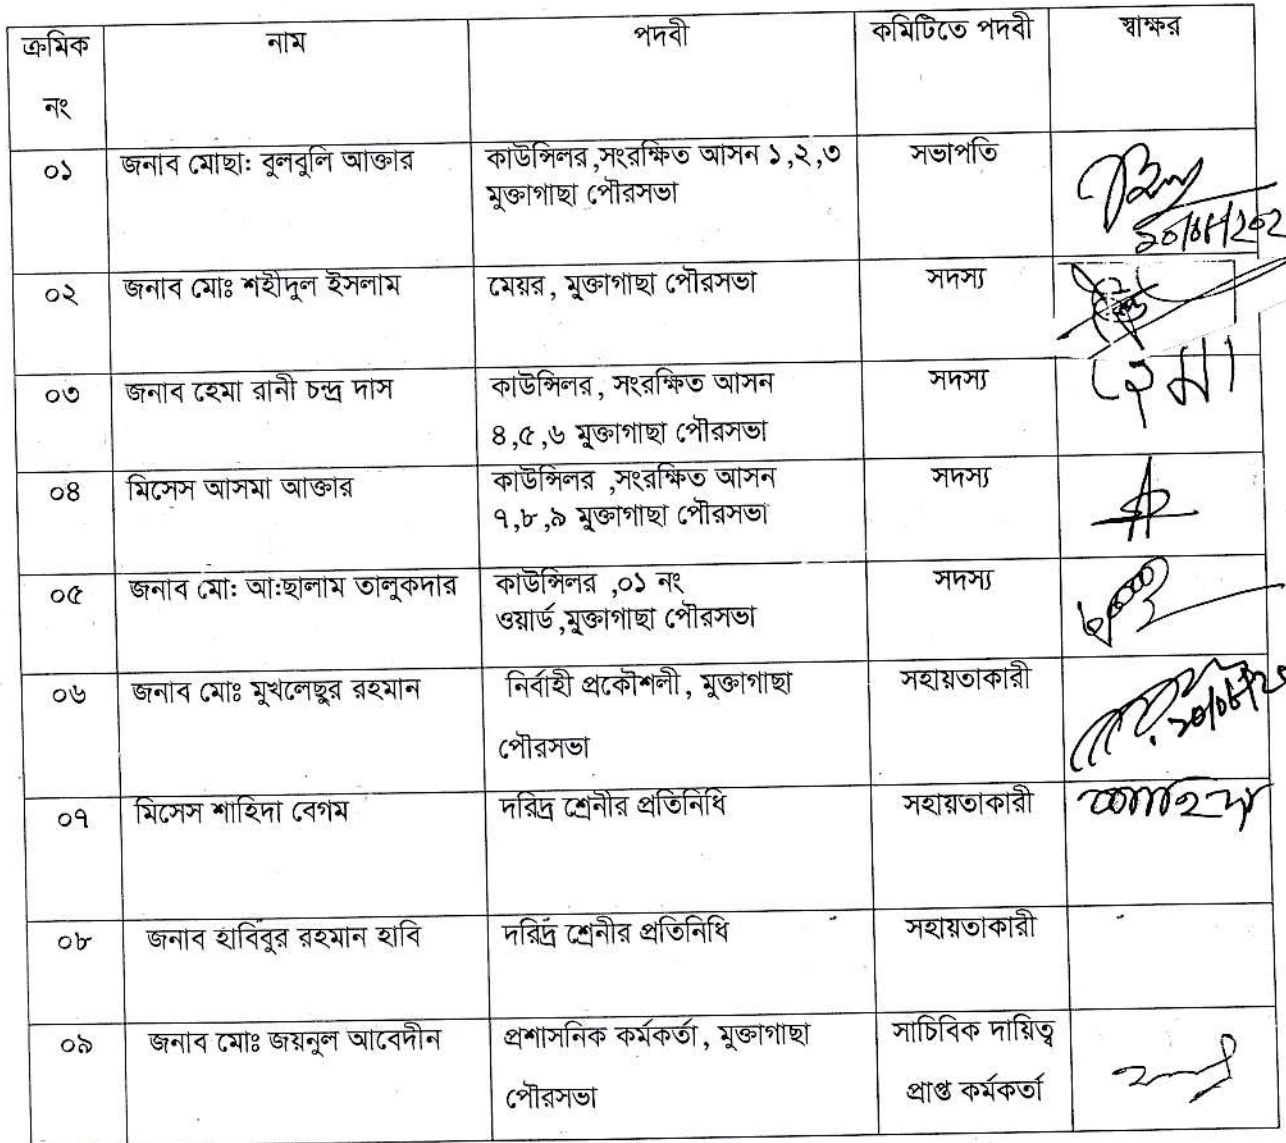 ক্রমিক নং নাম পদবী কমিটিতে পদবী স্বাক্ষর
০১ জনাব মোছা: বুলবুলি আক্তার কাউন্সিলর,সংরক্ষিত আসন ১,২,৩ সভাপতি
মুক্তাগাছা পৌরসভা
০২ জনাব মোঃ শহীদুল ইসলাম মেয়র, মুক্তাগাছা পৌরসভা সদস্য
০৩ জনাব হেমা রানী চন্দ্র দাস কাউন্সিলর, সংরক্ষিত আসন সদস্য হেমা
৪,৫,৬ মুক্তাগাছা পৌরসভা
০৪ মিসেস আসমা আক্তার কাউন্সিলর ,সংরক্ষিত আসন সদস্য
৭,৮,৯ মুক্তাগাছা পৌরসভা
০৫ জনাব মো: আ:ছালাম তালুকদার কাউন্সিলর ,০১ নং সদস্য
ওয়ার্ড,মুক্তাগাছা পৌরসভা
০৬ জনাব মোঃ মুখলেছুর রহমান নির্বাহী প্রকৌশলী, মুক্তাগাছা সহায়তাকারী
পৌরসভা
০৭ মিসেস শাহিদা বেগম দরিদ্র শ্রেনীর প্রতিনিধি সহায়তাকারী
০৮ জনাব হাবিবুর রহমান হাবি দরিদ্র শ্রেনীর প্রতিনিধি সহায়তাকারী
০৯ জনাব মোঃ জয়নুল আবেদীন প্রশাসনিক কর্মকর্তা, মুক্তাগাছা সাচিবিক দায়িত্ব
পৌরসভা প্রাপ্ত কর্মকর্তা